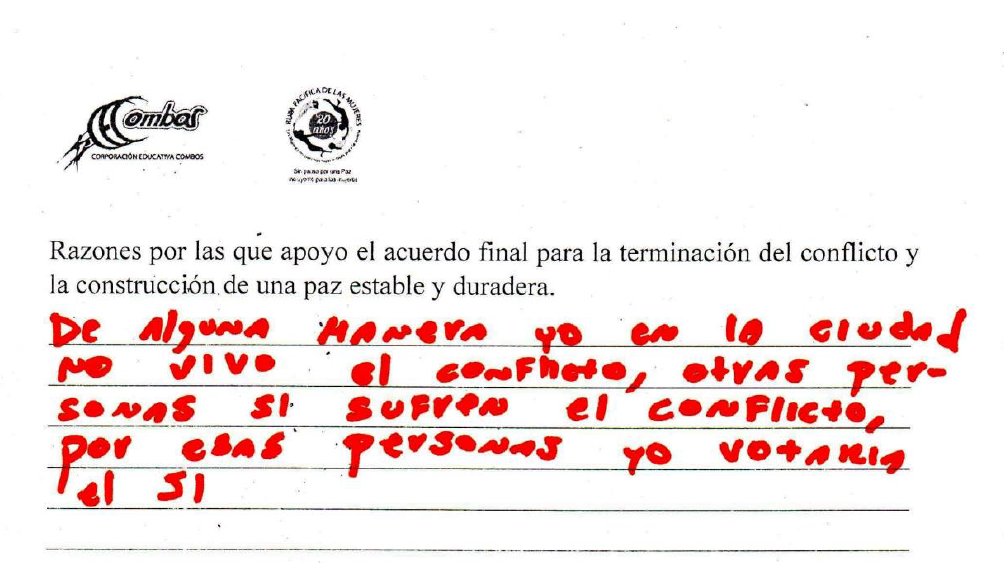 Combos
CORPORACIÓN EDUCATIVA COMBOS
RUTA PACIFICA DE LAS MUJERES
20
años
Sin pausa por una Paz
incluyente para las mujeres
Razones por las que apoyo el acuerdo final para la terminación del conflicto y
la construcción de una paz estable y duradera.
De Alguna MANERA yo en la ciudad
NO VIVO el conflicto, otras per-
sonas si sufren el conflicto,
por esas personas yo votaria
el SI